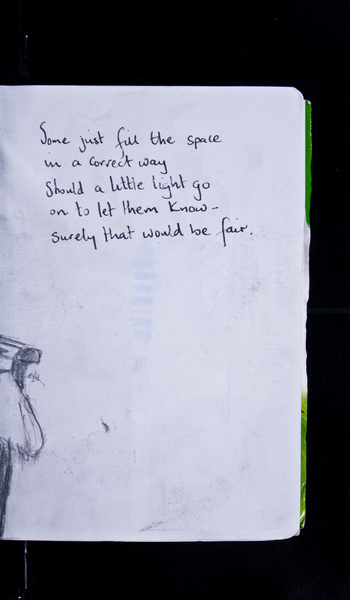 Some just fill the space
in a correct way
Should a little light go
on to let them know-
surely that would be fair.